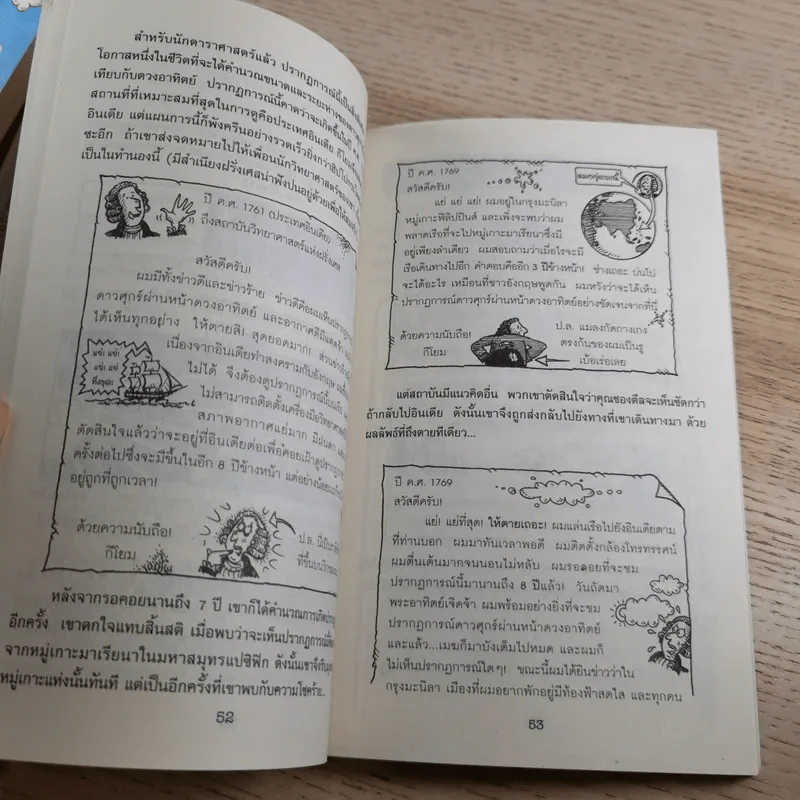 สำหรับนักดาราศาสตร์แล้ว ปรากฏการณ์นี้เป็น
โอกาสหนึ่งในชีวิตที่จะได้คำนวณขนาดและระยะห่างของ
เทียบกับดวงอาทิตย์ ปรากฏการณ์นี้คาดว่าจะเกิดขึ้นในปี ค.ศ.
สถานที่ที่เหมาะสมที่สุดในการดูคือประเทศอินเดีย กีโยม
อินเดีย แต่แผนการนี้ก็พังครืนอย่างรวดเร็วยิ่งกว่า
ซะอีก ถ้าเขาส่งจดหมายไปให้เพื่อนนักวิทยาศาสตร์ของเขา
เป็นในทำนองนี้ (มีสำเนียงฝรั่งเศสน่าฟังปนอยู่ด้วยเพื่อให้
ปี ค.ศ. 1761 (ประเทศอินเดีย)
ถึงสถาบันวิทยาศาสตร์แห่งฝรั่งเศส
สวัสดีครับ!
ผมมีทั้งข่าวดีและข่าวร้าย ข่าวดีคือผมเห็นปรากฏการณ์
ดาวศุกร์ผ่านหน้าดวงอาทิตย์ และอากาศดีมีแดดจ้า
ได้เห็นทุกอย่าง ให้ตายสิ! สุดยอดมาก! ส่วนข่าวร้าย
เนื่องจากอินเดียทำสงครามกับอังกฤษ
แย่! แย่!
แย่! แย่
ที่สุด!
ไม่ได้ จึงต้องดูปรากฏการณ์นี้บนเรือ
ไม่สามารถติดตั้งเครื่องมือวิทยาศาสตร์
สภาพอากาศแย่มาก มีฝนตก
ตัดสินใจแล้วว่าจะอยู่ที่อินเดียต่อเพื่อคอยเฝ้าดูปรากฏการณ์
ครั้งต่อไปซึ่งจะมีขึ้นในอีก 8 ปีข้างหน้า แต่อย่างน้อยผมก็
อยู่ถูกที่ถูกเวลา!
ด้วยความนับถือ!
กีโยม
ป.ล. นี่เป็น
ที่ขึ้นบน
หลังจากรอคอยนานถึง 7 ปี เขาก็ได้คำนวณการเกิด
อีกครั้ง เขาตกใจแทบสิ้นสติ เมื่อพบว่าจะเห็นปรากฏการณ์
จากหมู่เกาะมาเรียนาในมหาสมุทรแปซิฟิก ดังนั้นเขาจึง
หมู่เกาะแห่งนั้นทันที แต่เป็นอีกครั้งที่เขาพบกับความโชคร้าย...
52
ปี ค.ศ. 1769
สวัสดีครับ!
ผมอยู่ตรงนี้
แย่ แย่ แย่! ผมอยู่ในกรุงมะนิลา
หมู่เกาะฟิลิปปินส์ และเพิ่งจะพบว่าผม
พลาดเรือที่จะไปหมู่เกาะมาเรียนาซึ่งมี
อยู่เพียงลำเดียว ผมสอบถามว่าเมื่อไรจะมี
เรือเดินทางไปอีก คำตอบคืออีก 3 ปีข้างหน้า! ช่างเถอะ บ่นไป
จะได้อะไร เหมือนที่ชาวอังกฤษพูดกัน ผมหวังว่าจะได้เห็น
ปรากฏการณ์ดาวศุกร์ผ่านหน้าดวงอาทิตย์อย่างชัดเจนจากที่นี่
ด้วยความนับถือ!
กีโยม
ป.ล. แมลงกัดกางเกง
ตรงก้นของผมเป็นรู
เบ้อเร่อเลย
แต่สถาบันมีแนวคิดอื่น พวกเขาตัดสินใจว่าคุณชองตีลจะเห็นชัดกว่า
ถ้ากลับไปอินเดีย ดังนั้นเขาจึงถูกส่งกลับไปยังทางที่เขาเดินทางมา ด้วย
ผลลัพธ์ที่ถึงตายทีเดียว...
ปี ค.ศ. 1769
สวัสดีครับ!
แย่! แย่ที่สุด! ให้ตายเถอะ! ผมแล่นเรือไปยังอินเดียตาม
ที่ท่านบอก ผมมาทันเวลาพอดี ผมติดตั้งกล้องโทรทรรศน์
ผมตื่นเต้นมากจนนอนไม่หลับ ผมรอคอยที่จะชม
ปรากฏการณ์นี้มานานถึง 8 ปีแล้ว! วันถัดมา
พระอาทิตย์เจิดจ้า ผมพร้อมอย่างยิ่งที่จะชม
ปรากฏการณ์ดาวศุกร์ผ่านหน้าดวงอาทิตย์
และแล้ว...เมฆก็มาบังเต็มไปหมด และผมก็
ไม่เห็นปรากฏการณ์ใดๆ! ขณะนี้ผมได้ยินข่าวว่าใน
กรุงมะนิลา เมืองที่ผมอยากพักอยู่มีท้องฟ้าสดใส และทุกคน
53